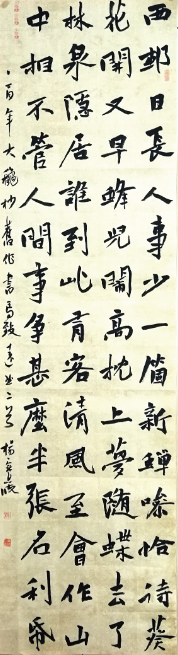 西邨日長人事少一箇新蟬噪恰待葵
花開又早蜂兒鬧高枕上夢隨蝶去了
林泉隱居誰到此有客清風至會作山
中相不管人間事爭甚麼半張名利帋
年大書馬致遠曲二首 楊